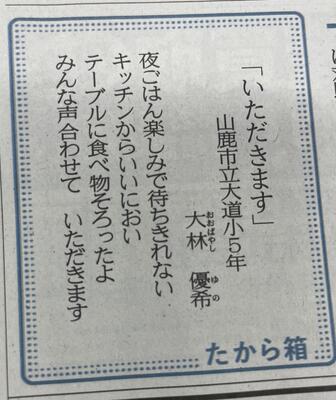 「いただきます」
山鹿市立大道小5年
大林　優希
おおばやし　ゆの
夜ごはん楽しみで待ちきれない
キッチンからいいにおい
テーブルに食べ物そろったよ
みんな声合わせて　いただきます
たから箱